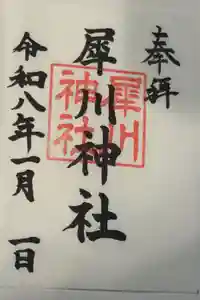 奉拝
犀川神社
犀川
神社
令和八年一月一日